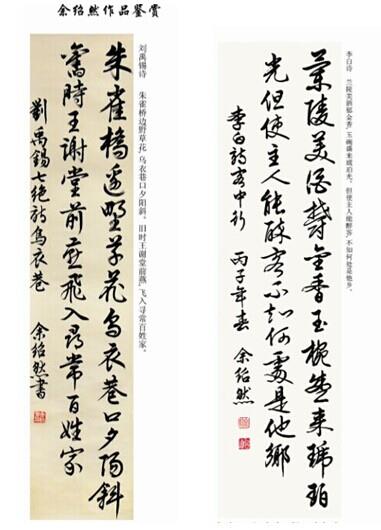 余绍然作品鉴赏
李白诗 兰陵美酒郁金香，玉碗盛来琥珀光。但使主人能醉客，不知何处是他乡。
蘭陵美酒鬱金香玉椀盛来琥珀
光但使主人能醉客不知何處是他鄉
李白詩客中行 丙子年春 余紹然
刘禹锡诗 朱雀桥边野草花，乌衣巷口夕阳斜。旧时王谢堂前燕，飞入寻常百姓家。
朱雀橋邊野草花烏衣巷口夕陽斜
舊時王謝堂前燕飛入尋常百姓家
劉禹錫七絶詩烏衣巷 余紹然書